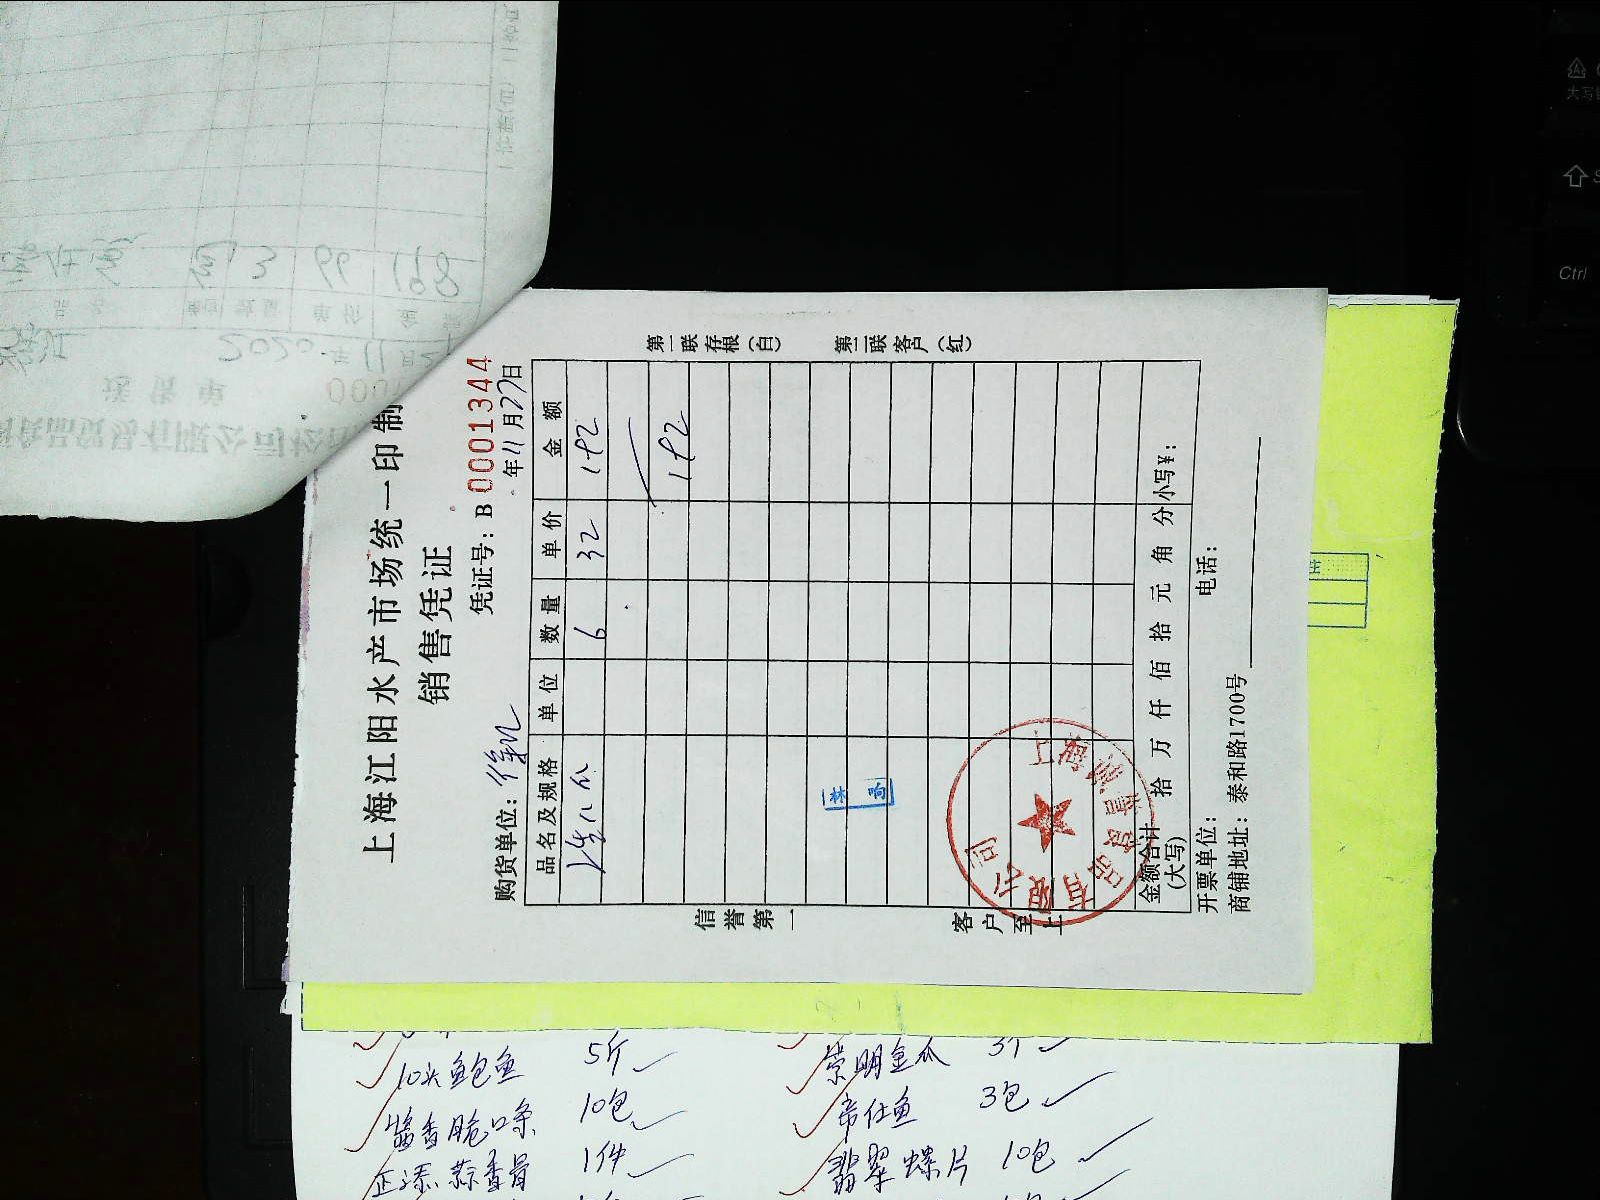 上海江阳水产市场统一印制
销售凭证
凭证号：B 0001344
购货单位：徐 年11月27日
品名及规格 单位 数量 单价 金额
6 32 192
192
金额合计(大写) 拾 万 仟 佰 拾 元 角 分 小写¥：
开票单位： 电话：
商铺地址：泰和路1700号
第一联存根（白） 第二联客户（红）
信誉第一 客户至上
林 响
上海 有限公司
送货单
2020年11月
3 66 198
10头鲍鱼 5斤
酱香脆口条 10包
蒜香骨 1件
崇明金瓜 3个
帝仕鱼 3包
翡翠螺片 10包
大写
Ctrl